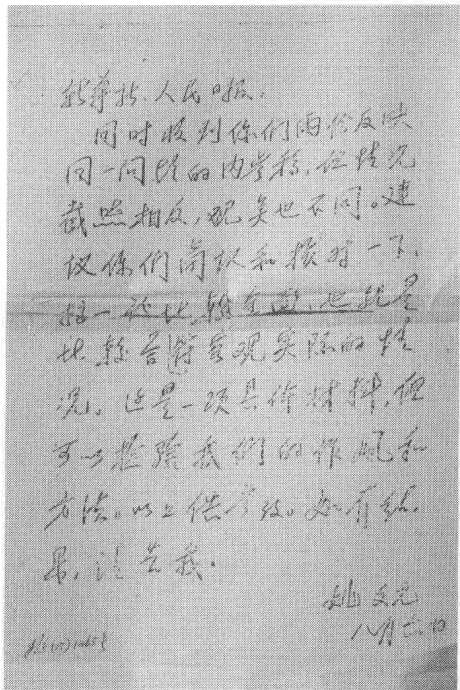 新华社、人民日报:
同时收到你们两份反映
同一问题的内参稿，但情况
截然相反，观点也不同。建
议你们商议和核对一下，
搞一份比较全面，也就是
比较合符客观实际的情
况。这是一项具体材料，但
可以检验我们的作风和
方法。以上供参考。如有结
果，请告我。
姚文元
八月六日